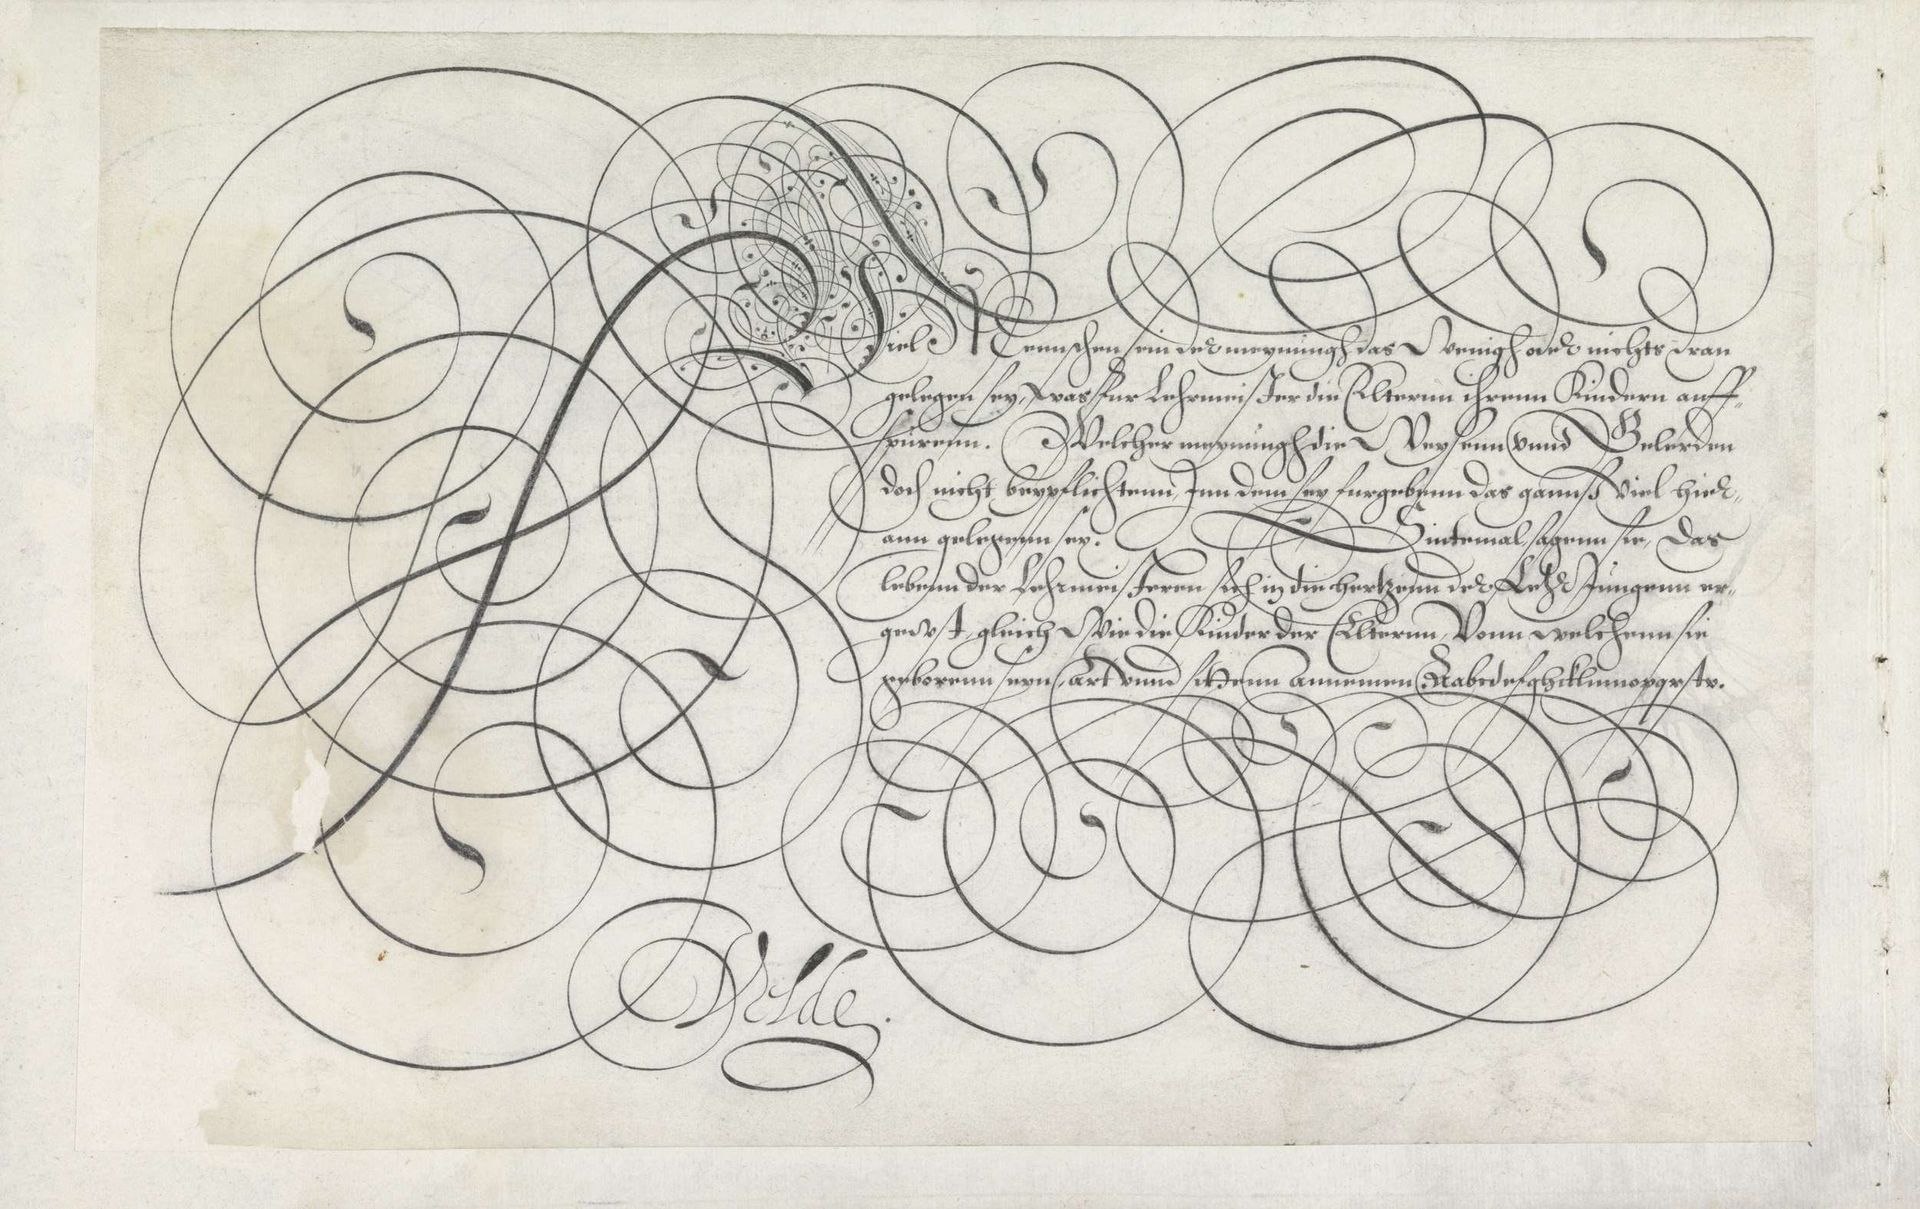 Viel Menschen sein der meynungh das Wenigh oder nichts dran
gelegen sey, was fur Lehrmeister die Elternn ihrenn Kindern auff-
spürenn. Welcher meynungh die Weysenn vnnd Gelerden
doch nicht beypflichtenn, Inn dem sey furgebenn das gannß viel hier-
ann gelegenn sey. Sintemal, sagenn sie, das
lebenn der Lehrmeisteren sich in die hertzenn der Lehr Jüngenn er-
geust, gleich Wie die Kinder der Elternn, Vonn welchenn sie
geborenn seyn, art vnnd sittenn annemen Aabcdefghiklmnopqrstv.
Velde.